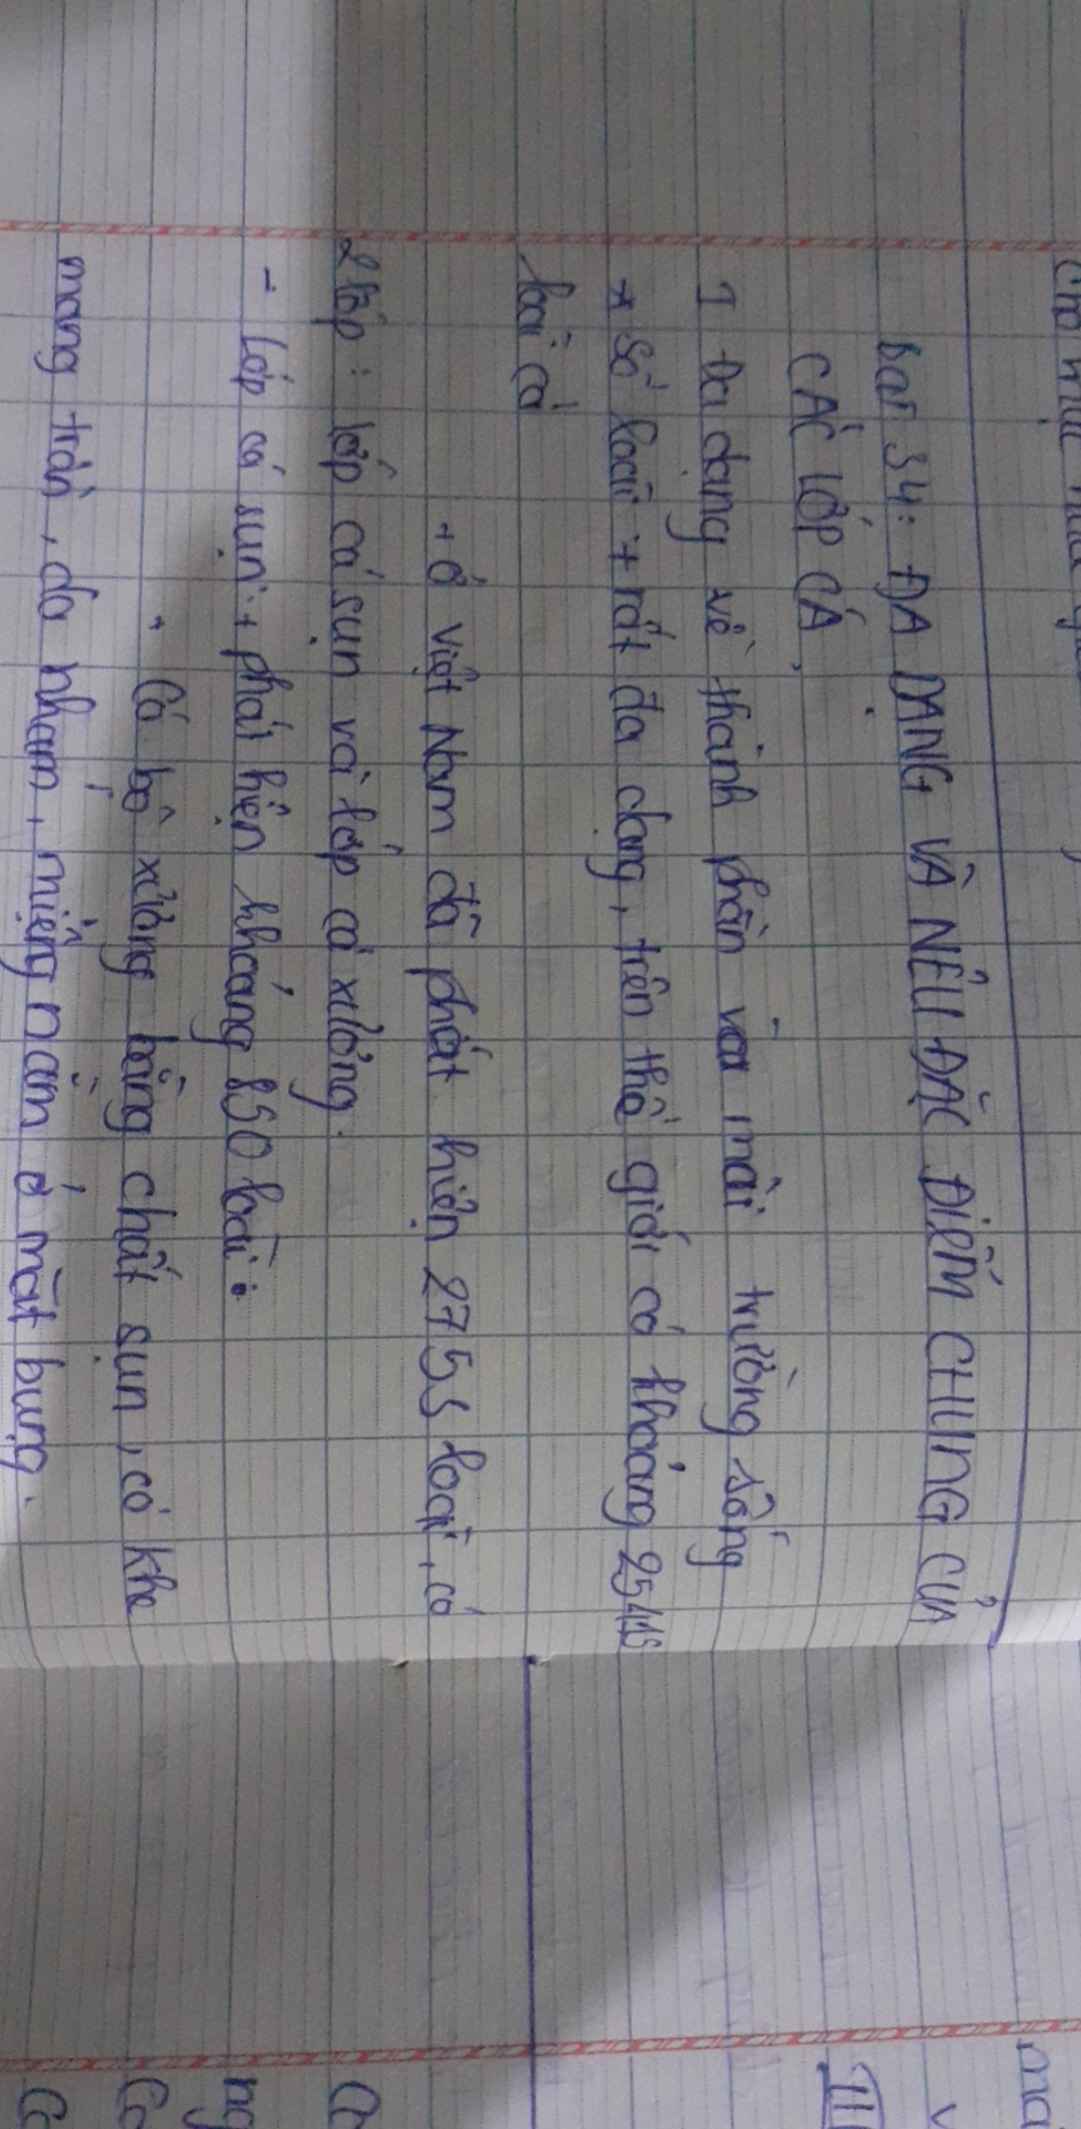 Bài 34: ĐA DẠNG VÀ NÊU ĐẶC ĐIỂM CHUNG CỦA
CÁC LỚP CÁ
I Đa dạng về thành phần và môi trường sống
* Số loài + rất đa dạng, trên thế giới có khoảng 25415
loài cá
+ ở Việt Nam đã phát hiện 2755 loài, có
2 lớp: lớp cá sụn và lớp cá xương.
- Lớp cá sụn: + phát hiện khoảng 850 loài.
+ Có bộ xương bằng chất sụn, có khe
mang trần, da nhám, miệng nằm ở mặt bụng.
III